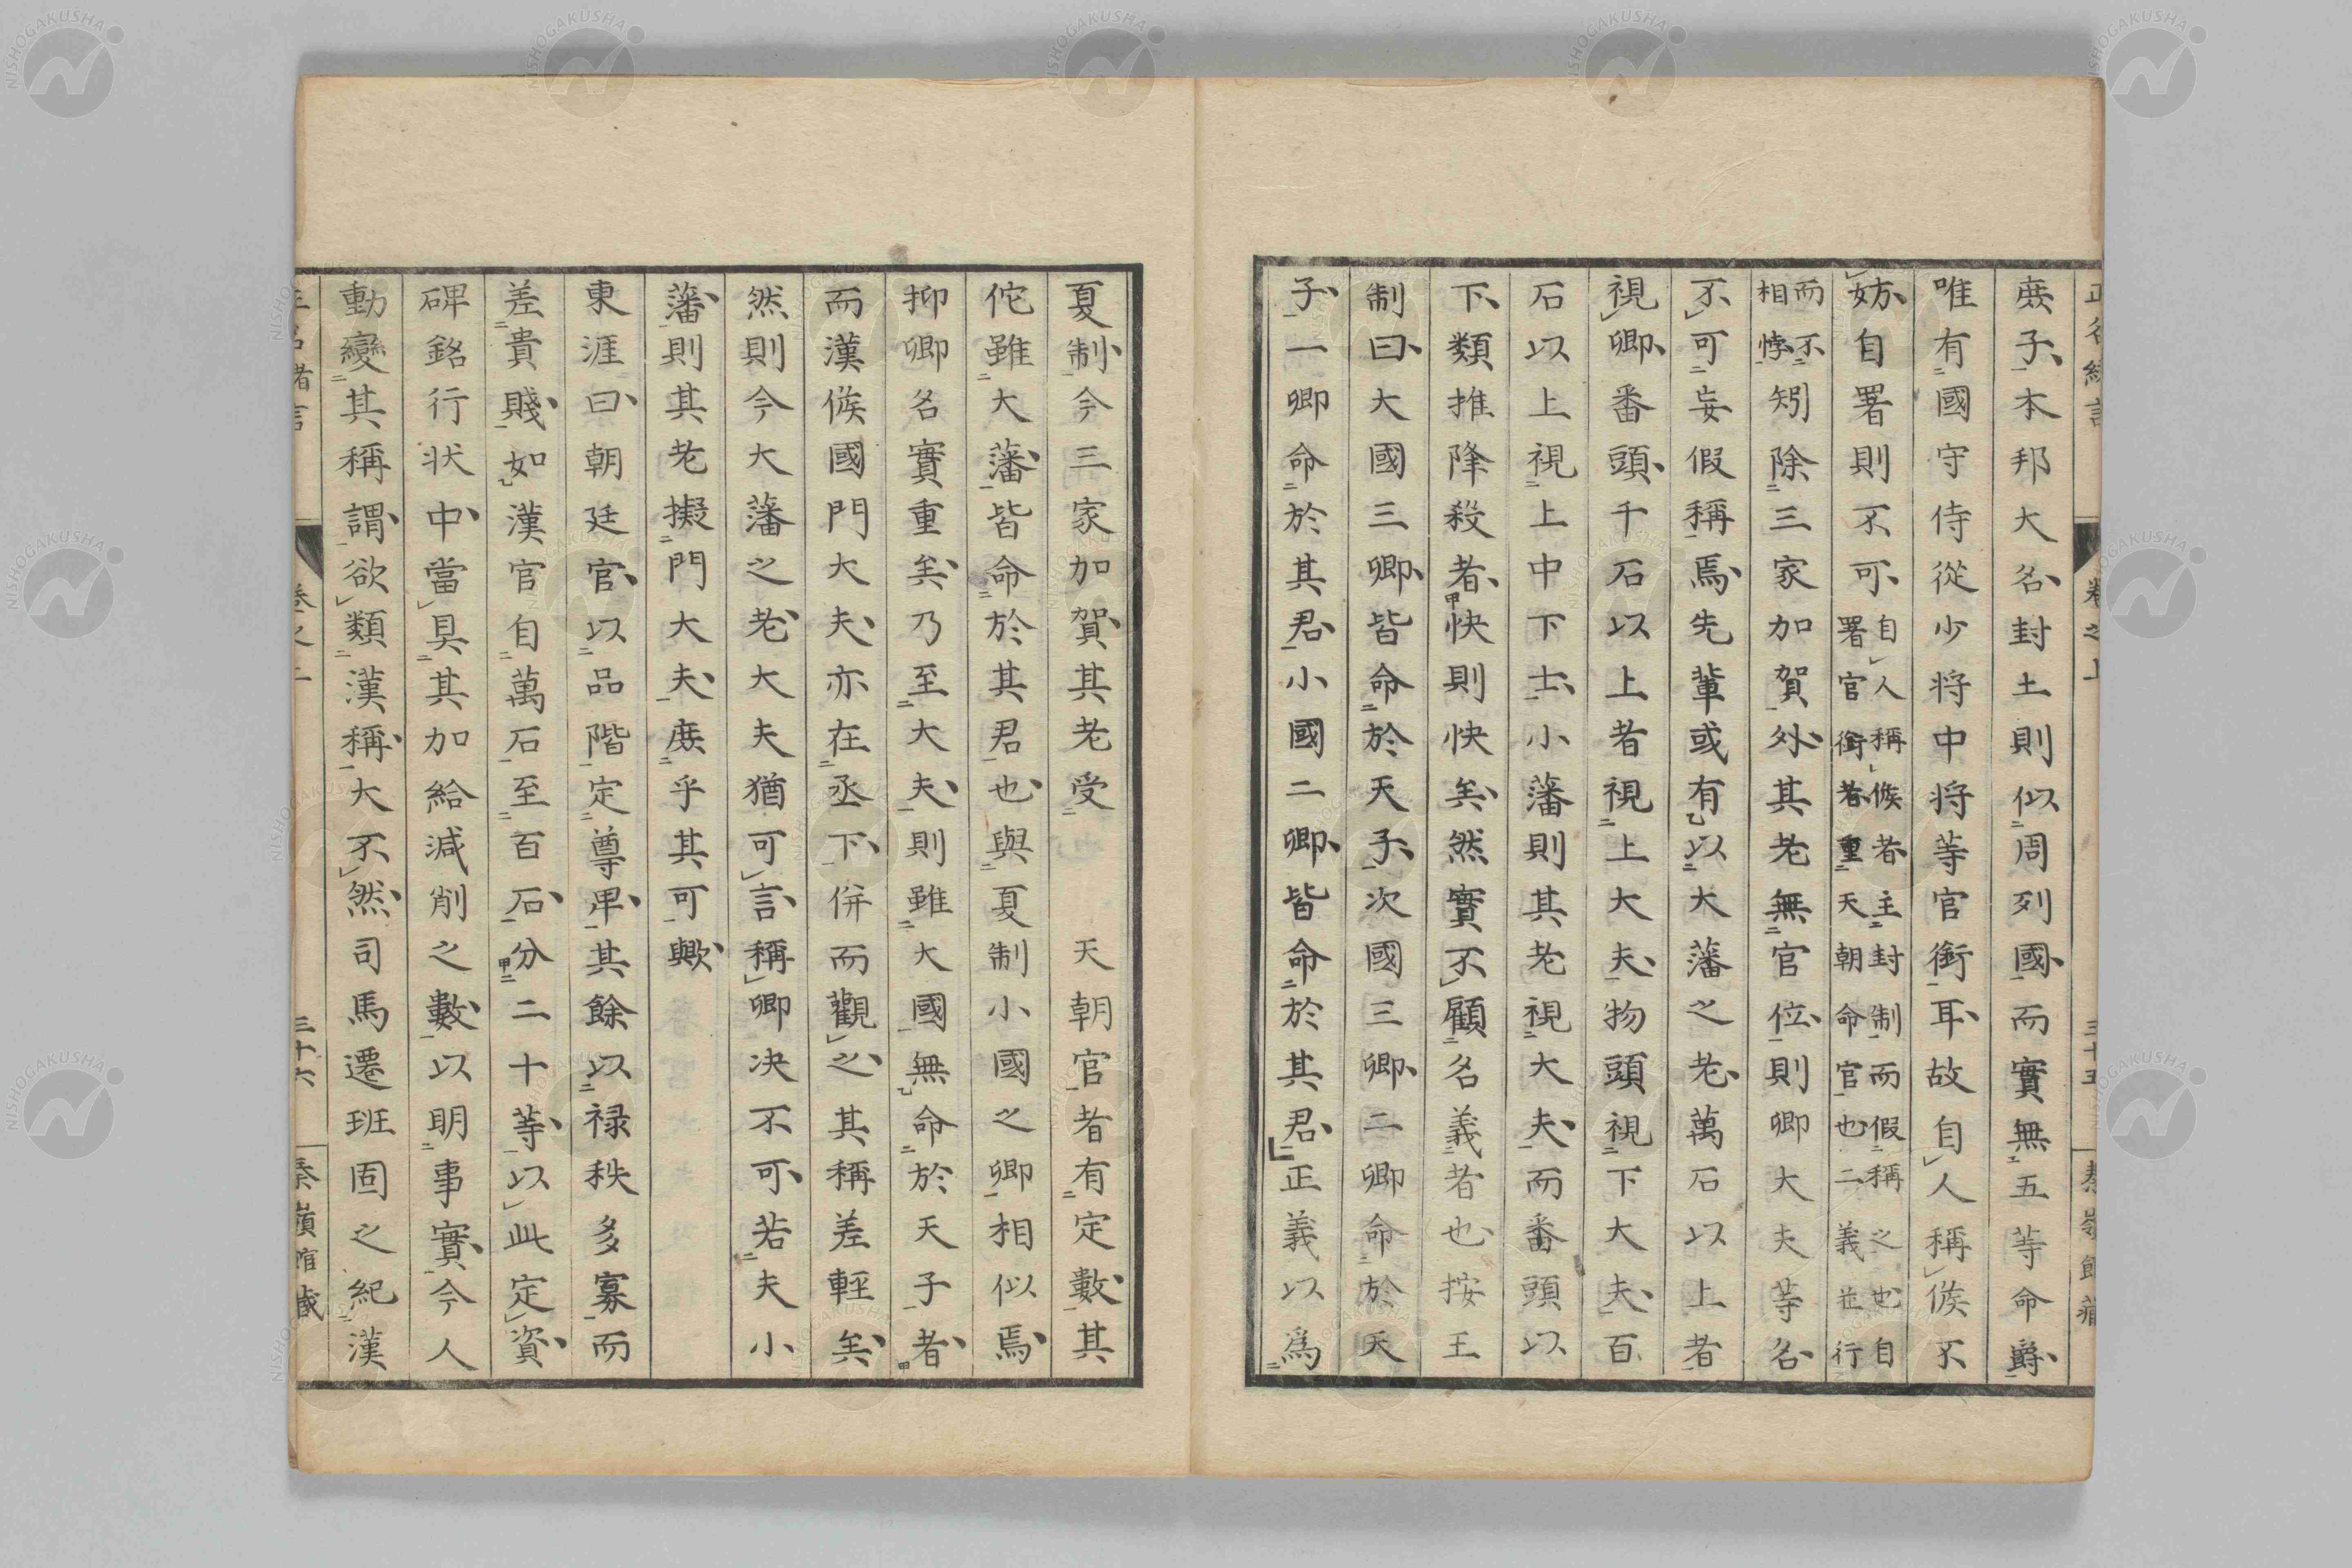 庶子本邦大名封土則似周列國而實無五等命爵
唯有國守侍從少將中將等官銜耳故自人稱侯不
妨自署則不可自人稱侯者主封制而假稱之也自署官銜者重天朝命官也二義並行
而不相悖矧除三家加賀外其老無官位則卿大夫等名
不可妄假稱焉先輩或有以大藩之老萬石以上者
視卿番頭千石以上者視上大夫物頭視下大夫百
石以上視上中下士小藩則其老視大夫而番頭以
下類推降殺者快則快矣然實不顧名義者也按王
制曰大國三卿皆命於天子次國三卿二卿命於天
子一卿命於其君小國二卿皆命於其君正義以爲
夏制今三家加賀其老受 天朝官者有定數其
佗雖大藩皆命於其君也與夏制小國之卿相似焉
抑卿名實重矣乃至大夫則雖大國無命於天子者
而漢侯國門大夫亦在丞下併而觀之其稱差輕矣
然則今大藩之老大夫猶可言稱卿决不可若夫小
藩則其老擬門大夫庶乎其可歟
東涯曰朝廷官以品階定尊卑其餘以禄秩多寡而
差貴賤如漢官自萬石至百石分二十等以此定資
碑銘行状中當具其加給減削之數以明事實今人
動變其稱謂欲類漢稱大不然司馬遷班固之紀漢
卷之上
三十五
三十六